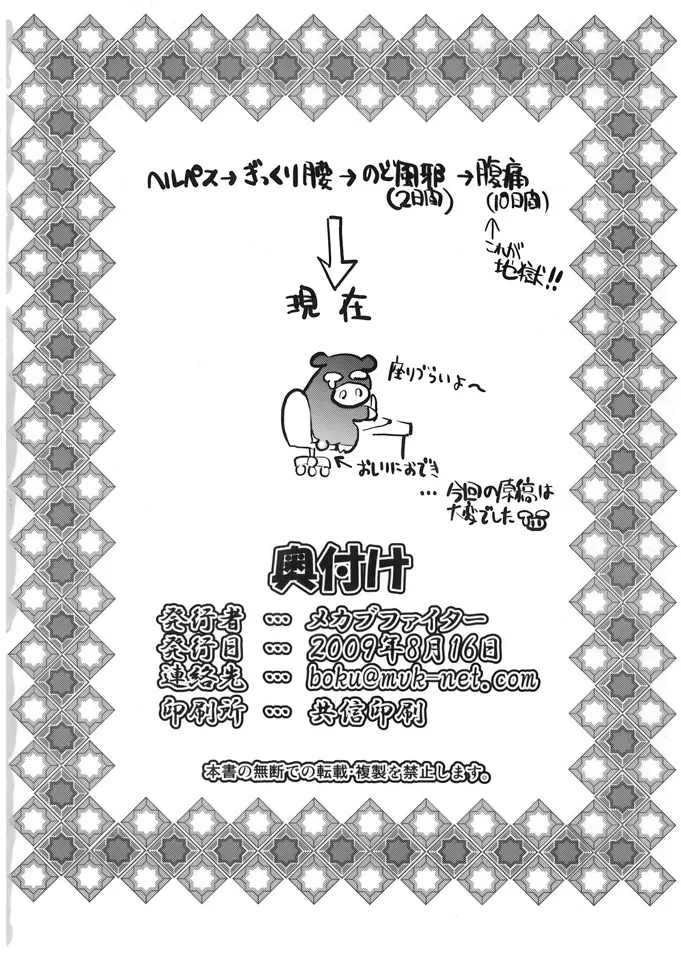 ヘルパス→ぎっくり腰→のど風邪→腹痛
(2日間)
(10日間)
↑
これが
地獄!!
現在
座りづらいよ〜
←おしりにおでき
…今回の原稿は
大変でした
奥付け
発行者 … メカブファイター
発行日 … 2009年8月16日
連絡先 … boku@mvk-net.com
印刷所 … 共信印刷
本書の無断での転載・複製を禁止します。